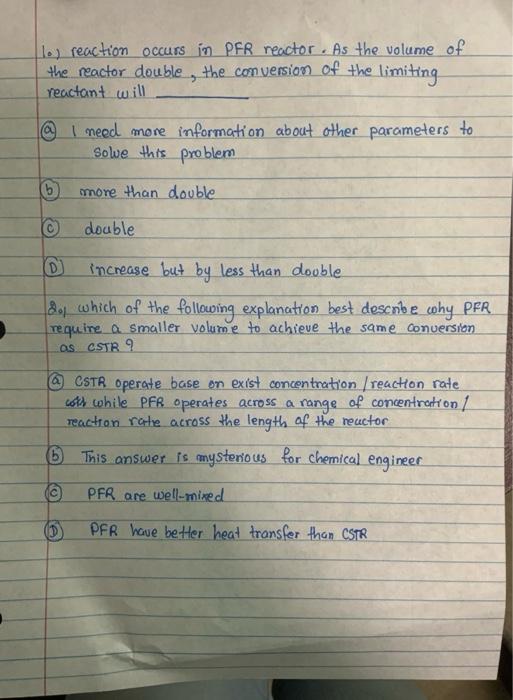 1.) reaction occurs in PFR reactor. As the volume of
the reactor double, the conversion of the limiting
reactant will ________
(a) I need more information about other parameters to
solve this problem
(b) more than double
(c) double
(D) increase but by less than double
2.) which of the following explanation best describe why PFR
require a smaller volume to achieve the same conversion
as CSTR ?
(a) CSTR operate base on exist concentration / reaction rate
while PFR operates across a range of concentration /
reaction rate across the length of the reactor
(b) This answer is mysterious for chemical engineer
(c) PFR are well-mixed
(D) PFR have better heat transfer than CSTR